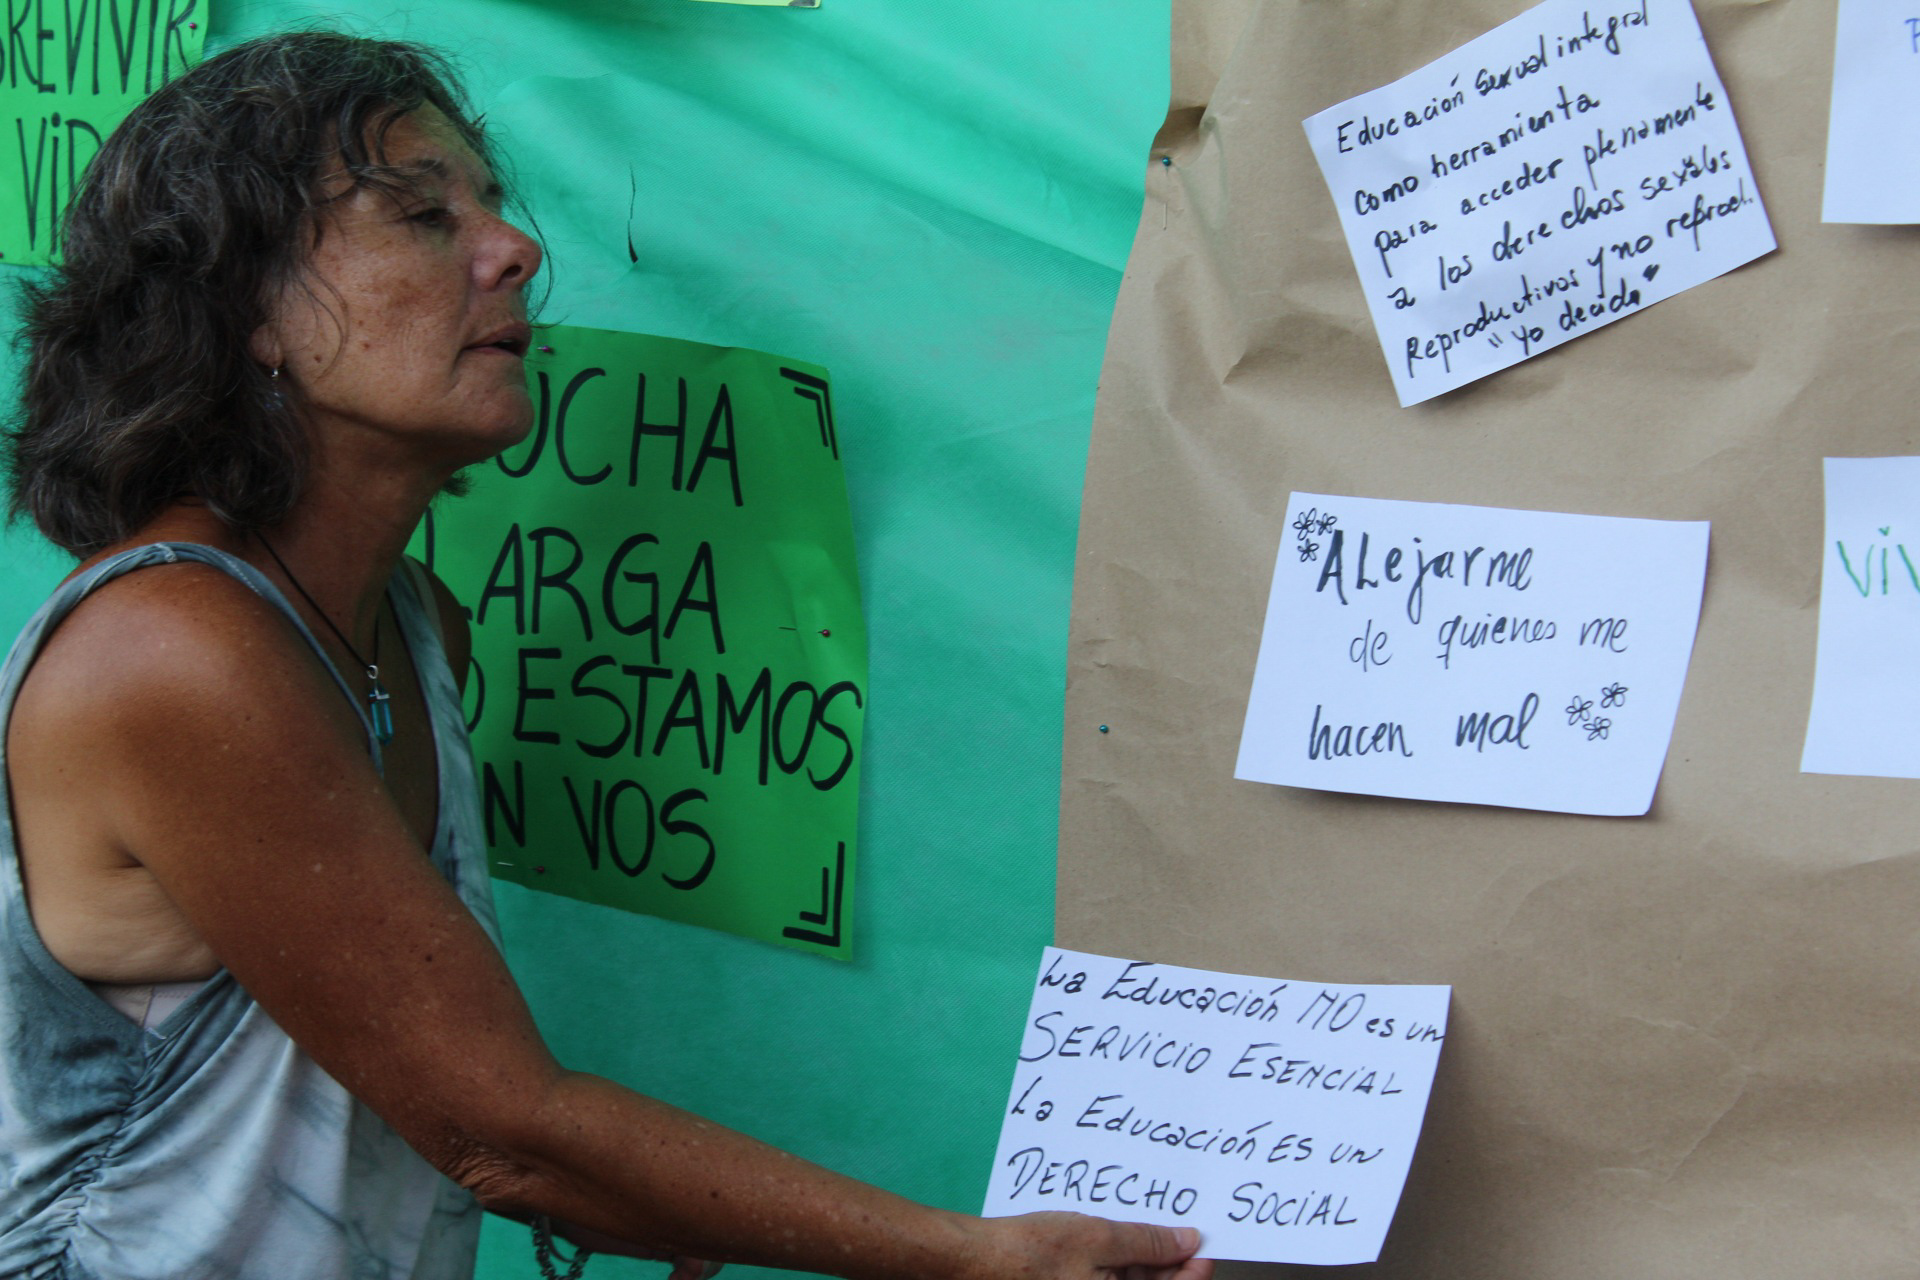 BREVIVIR
VID
UCHA
LARGA
O ESTAMOS
N VOS
Educación sexual integral
como herramienta
para acceder plenamente
a los derechos sexuales
Reproductivos y no reprod.
"Yo decido"
ALejarme
de quienes me
hacen mal
VIV
La Educación NO es un
SERVICIO ESENCIAL
La Educación ES un
DERECHO SOCIAL